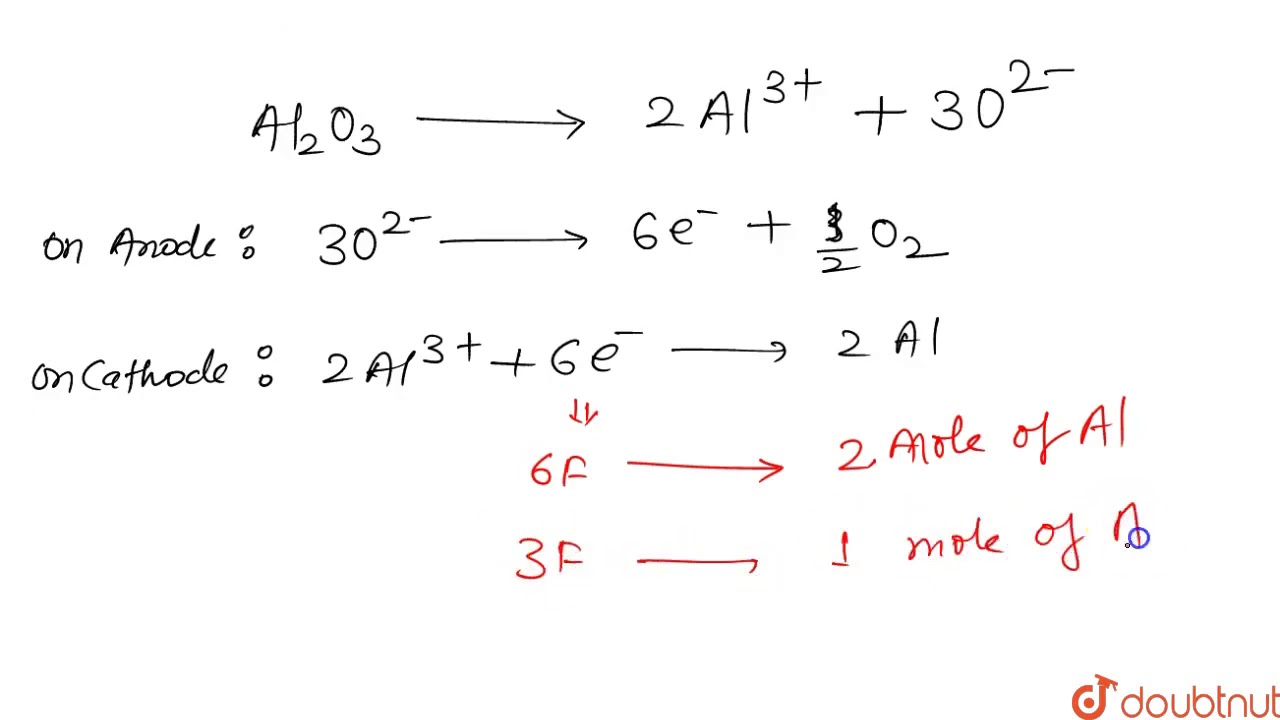 Al₂O₃ ⟶ 2Al³⁺ + 3O²⁻
on Anode: 3O²⁻ ⟶ 6e⁻ + 3/2 O₂
on Cathode: 2Al³⁺ + 6e⁻ ⟶ 2Al
⇓
6F ⟶ 2 Mole of Al
3F ⟶ 1 mole of A
doubtnut